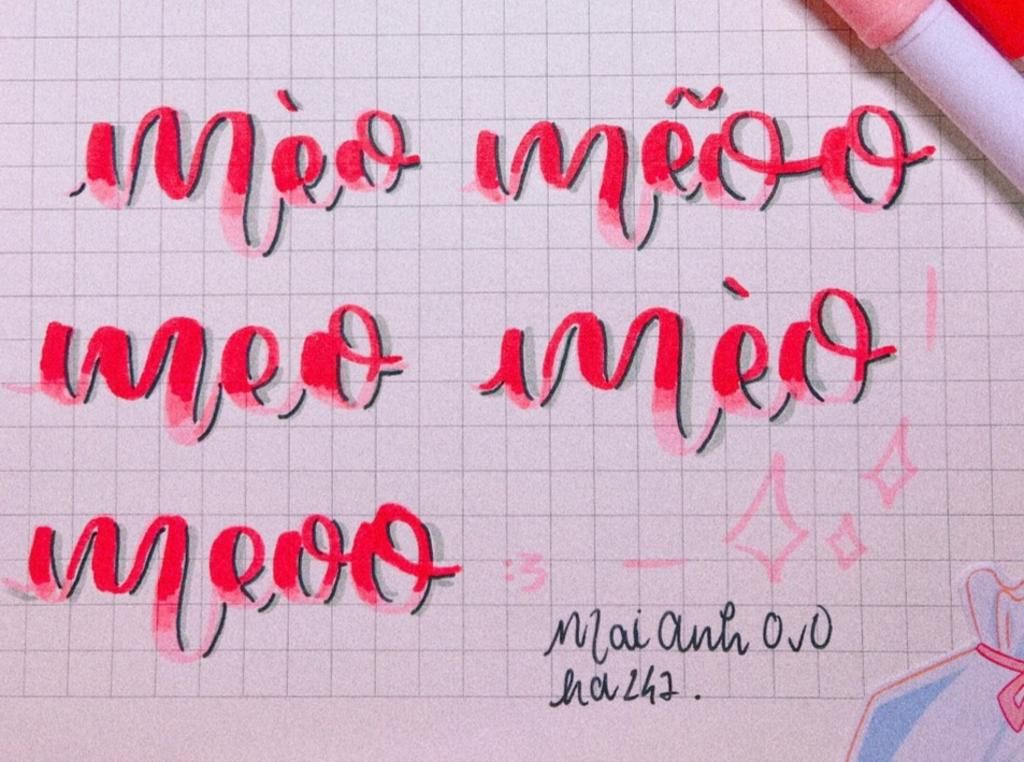 mèo mẽoo
meo mèo
meoo :3
Mai Anh OvO
ha247.